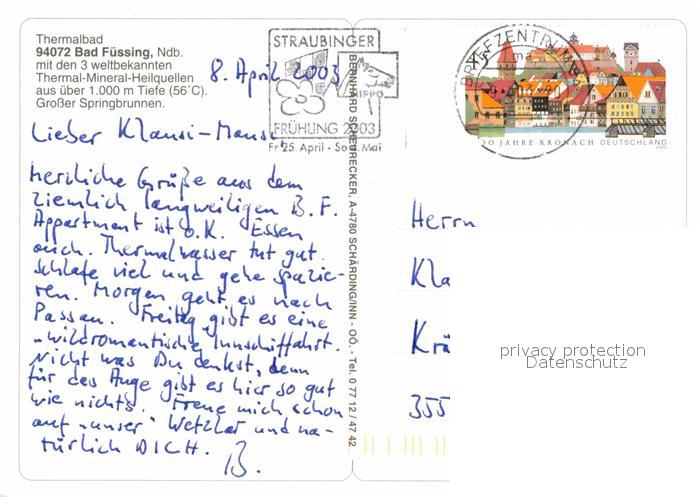 Thermalbad
94072 Bad Füssing, Ndb.
mit den 3 weltbekannten
Thermal-Mineral-Heilquellen
aus über 1.000 m Tiefe (56°C).
Großer Springbrunnen.
8. April 2003
Lieber Klausi-Mausi,
herzliche Grüße aus dem
ziemlich langweiligen B. F.
Appartment ist o.K. Essen
auch. Thermalwasser tut gut.
schlafe viel und gehe spazie-
ren. Morgen geht es nach
Passau. Freitag gibt es eine
„wildromantische Innschiffahrt.
Nicht was Du denkst, denn
für das Auge gibt es hier so gut
wie nichts. Freue mich schon
auf „unser" Wetzlar und na-
türlich DICH.
B.
BERNHARD SCHEURECKER, A-4780 SCHÄRDING/INN - OÖ., - Tel. 0 77 12 / 47 42
STRAUBINGER
HIPPO
FRÜHLING 2003
Fr 25. April - So 4. Mai
BRIEFZENTRUM
JAHRE KRONACH DEUTSCHLAND
2003
Herrn
Kla
Krä
355
privacy protection
Datenschutz